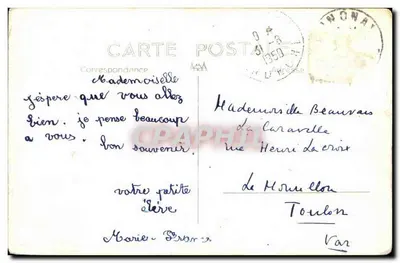 CARTE POSTALE
Correspondance
Mademoiselle
j'espère que vous allez
bien. je pense beaucoup
a vous. bon souvenir.
votre petite
élève
Marie-France
Mademoiselle Beauvais
La Caravelle
rue Henri Lacroix
Le Mourillon
Toulon
Var
31-8
1950
CPAPHIL